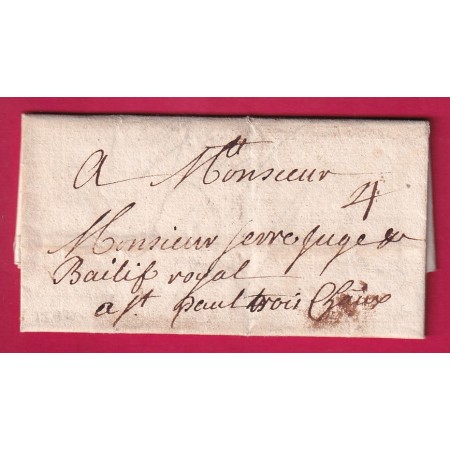 A Monsieur
4
Monsieur serre juge &
Bailif royal
a st. paul trois Chaux